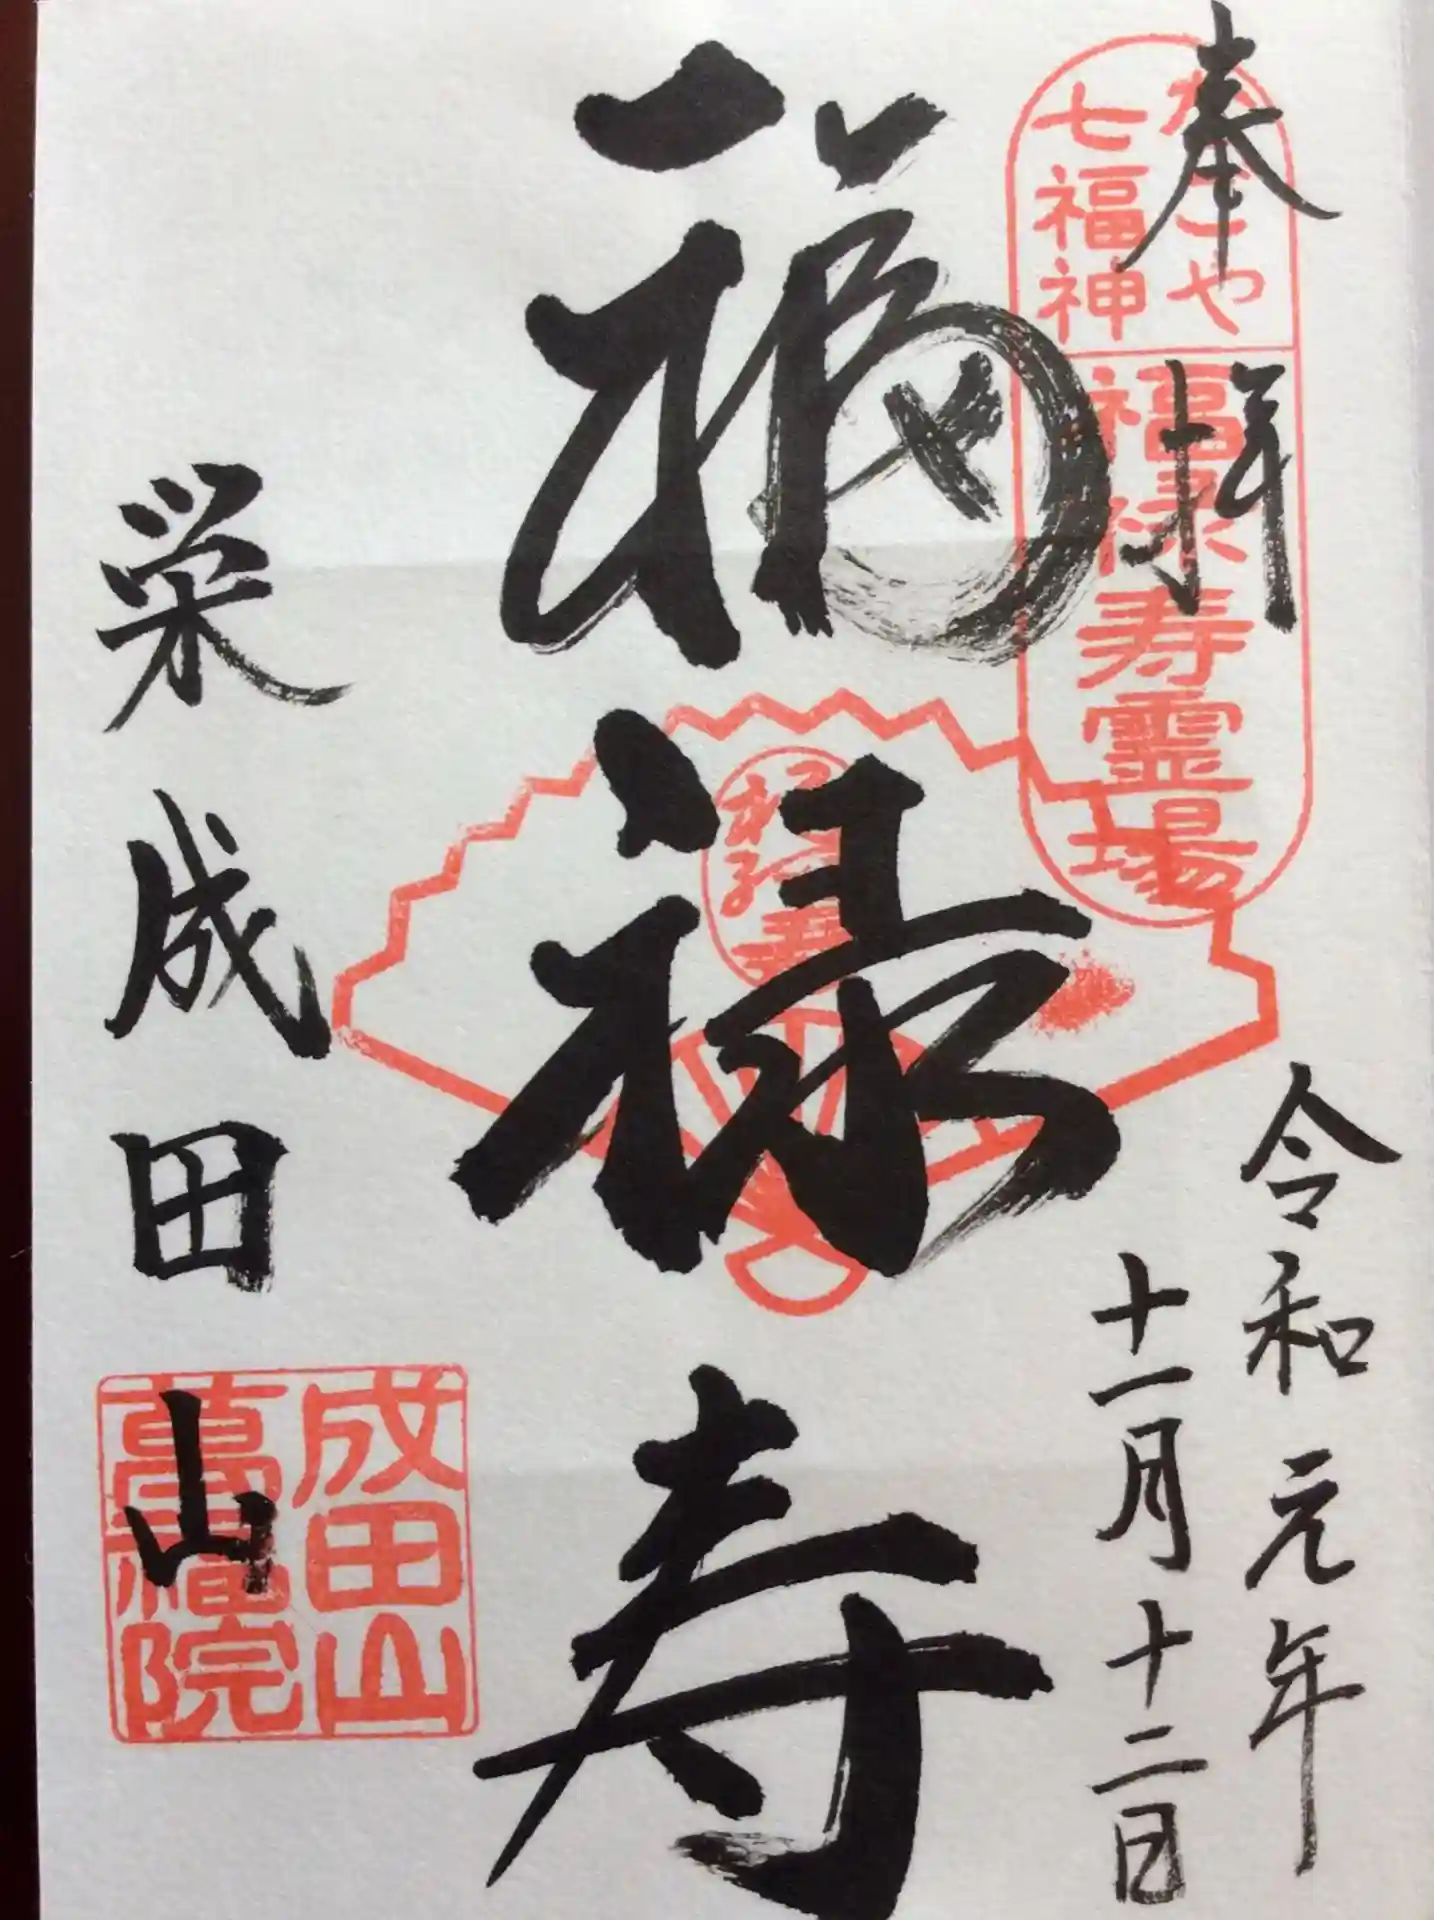 奉拝
令和元年
十一月十二日
なごや
七福神
福禄寿霊場
福禄寿
福禄寿
栄成田山
成田山
萬福院